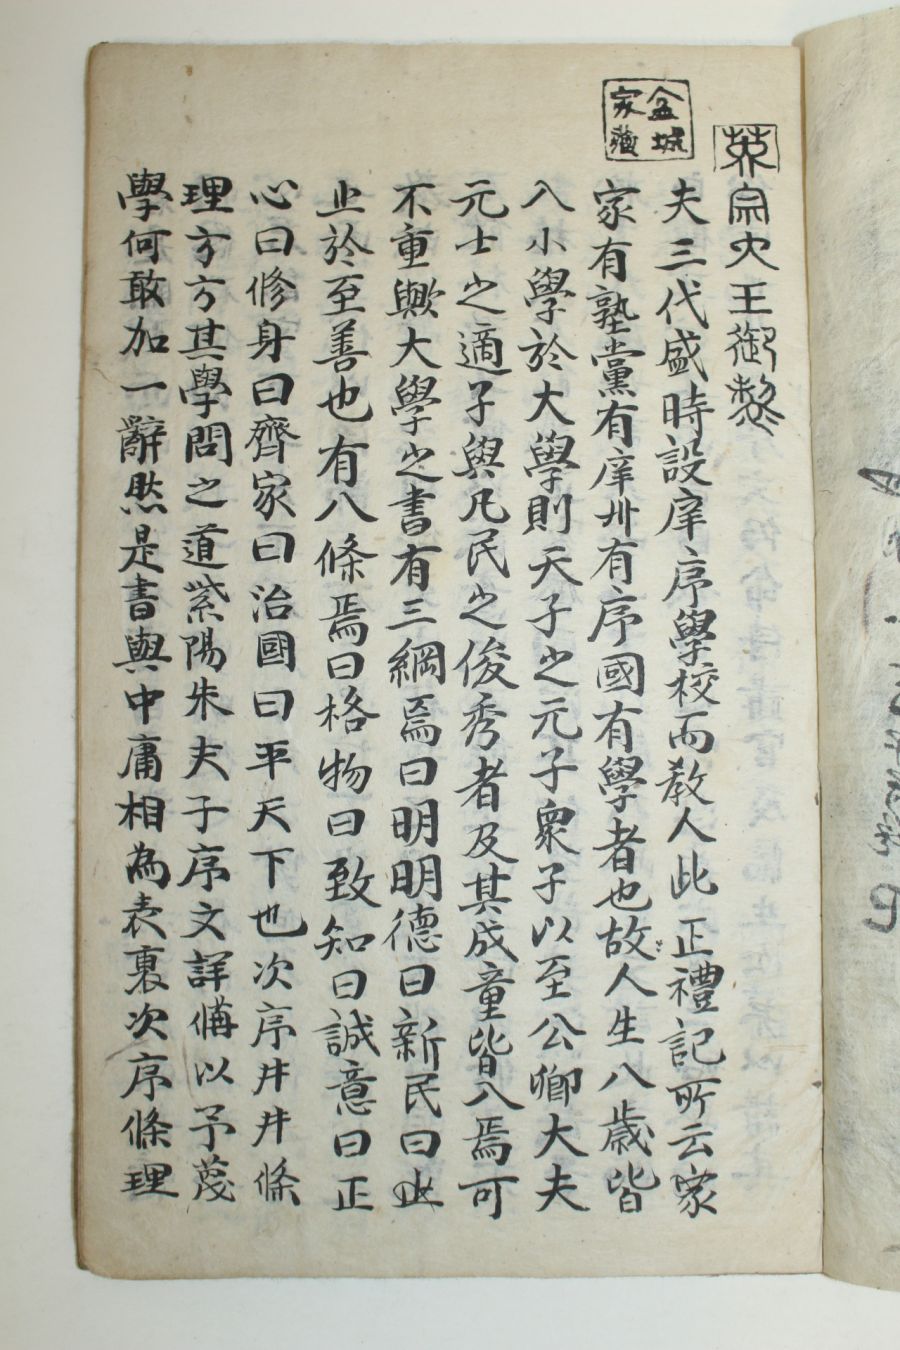 英宗大王御製
盆城
家藏
夫三代盛時設庠序學校而敎人此正禮記所云家
家有塾黨有庠州有序國有學者也故人生八歲皆
入小學於大學則天子之元子衆子以至公卿大夫
元士之適子與凡民之俊秀者及其成童皆入焉可
不重歟大學之書有三綱焉曰明明德曰新民曰止
止於至善也有八條焉曰格物曰致知曰誠意曰正
心曰修身曰齊家曰治國曰平天下也次序井井條
理方方其學問之道紫陽朱夫子序文詳備以予蔑
學何敢加一辭然是書與中庸相為表裏次序條理